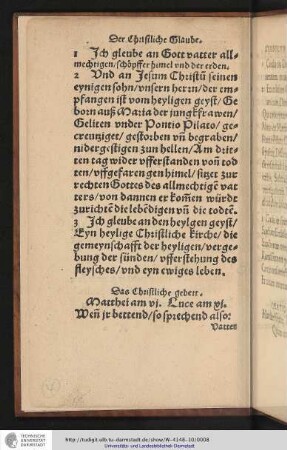 Der Christliche Glaube.
1 Ich gleube an Gott vatter all-
mechtigen/schöpffer himel vnd der erden.
2 Vnd an Jesum Christū seinen
eynigen sohn/vnsern herrn/der em
pfangen ist vom heyligen geyst/Ge
born auß Maria der jungkfrawen/
Geliten vnder Pontio Pilato/ge-
creutziget/gestorben vn̄ begraben/
nidergestigen zun hellen/Am drit-
ten tag wider vfferstanden von̄ tod
ten/vffgefaren gen himel/sitzet zur
rechten Gottes des allmechtigē vat
ters/von dannen er kom̄en würdt
zurichtē die lebēdigen vn̄ die todtē.
3 Ich gleube an den heylgen geyst/
Eyn heylige Christliche kirche/die
gemeynschafft der heyligen/verge-
bung der sünden/vfferstehung des
fleysches/vnd eyn ewiges leben.
Das Christliche gebett.
Matthei am vj. Luce am xj.
Wen̄ jr bettend/so sprechend also:
Vatter
TECHNISCHE
UNIVERSITÄT
DARMSTADT
http://tudigit.ulb.tu-darmstadt.de/show/W-4148-10/0008
Universitäts- und Landesbibliothek Darmstadt